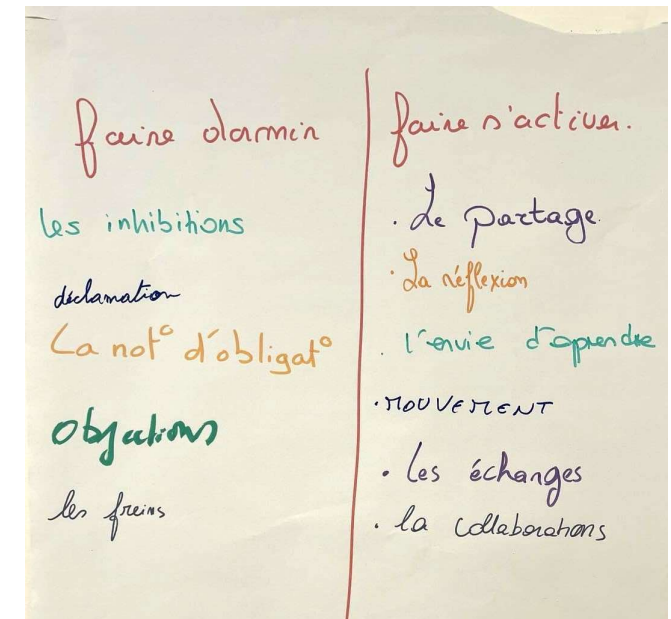 faire dormir
les inhibitions
déclamation
La not° d'obligat°
Objections
les freins
faire s'activer.
. Le partage.
. La réflexion
. l'envie d'aprendre
. MOUVEMENT
. les échanges
. la collaborations